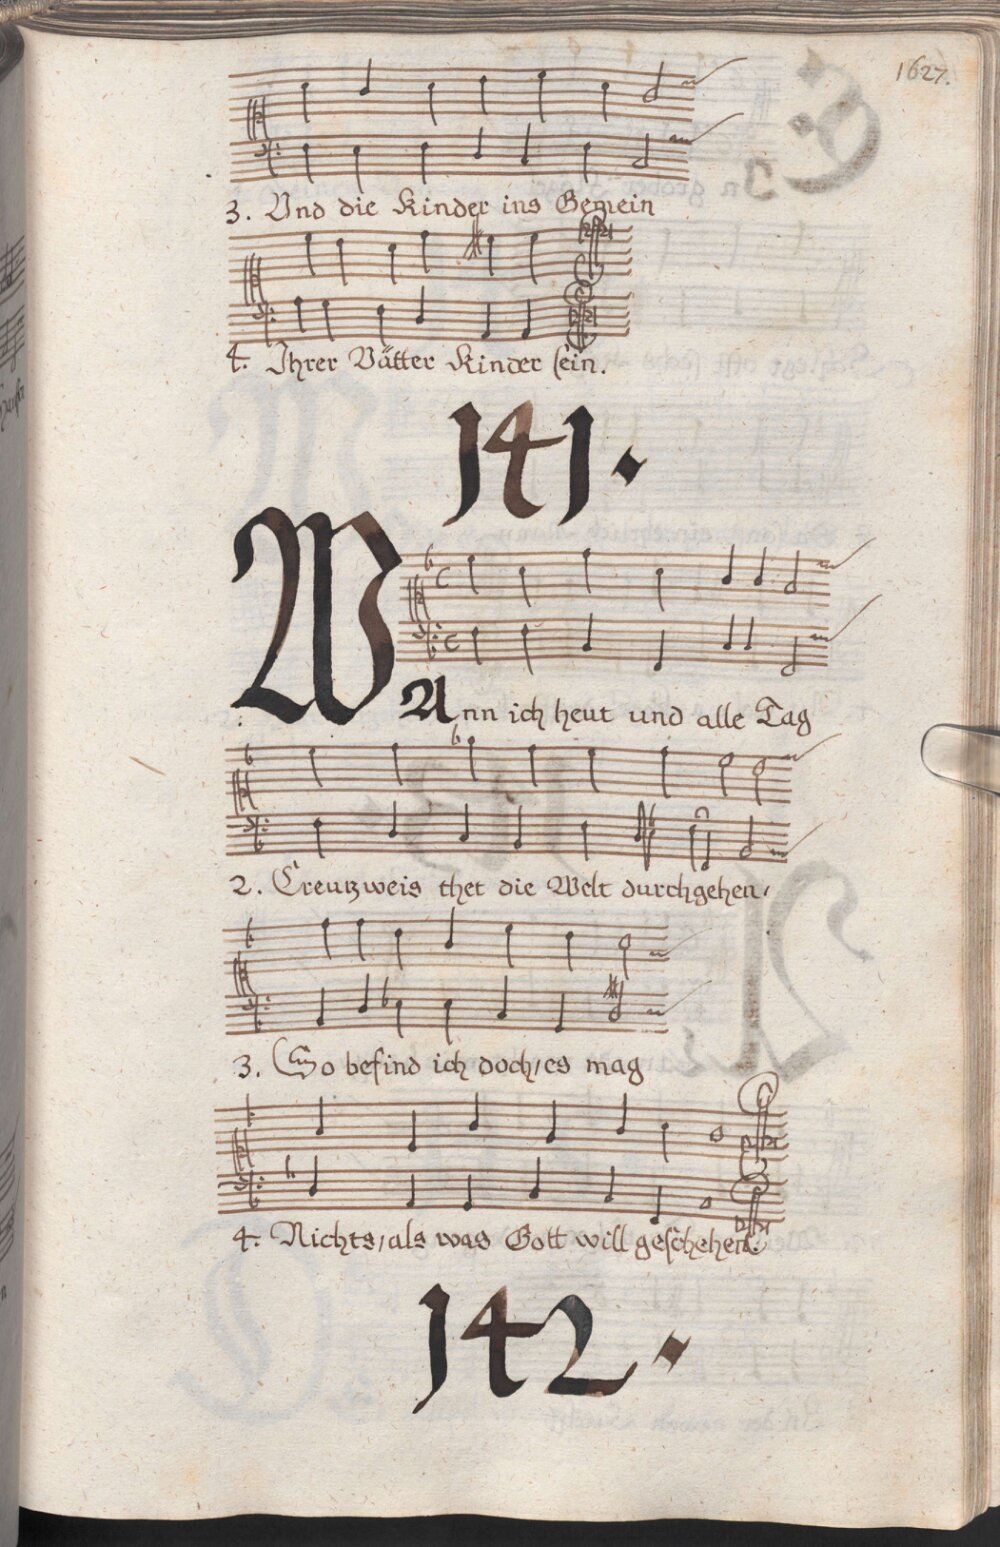 1627.
3. Vnd die Kinder ins Gemein
4. Ihrer Vätter Kinder sein.
141.
WAnn ich heut und alle Tag
2. Creutzweis thet die Welt durchgehen,
3. So befind ich doch, es mag
4. Nichts, als was Gott will geschehen.
142.